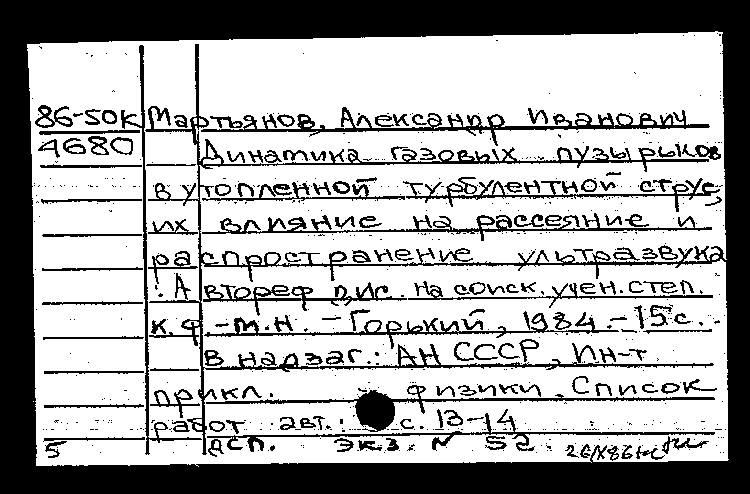 86-50к Мартьянов, Александр Иванович
4680 Динамика газовых пузырьков
в утопленной турбулентной струе,
их влияние на рассеяние и
распространение ультразвука
: Автореф дис. на соиск. учен. степ.
к.ф.-м.н. - Горький, 1984. - 15 с.
В надзаг.: АН СССР, Ин-т
прикл. физики. Список
работ авт.: с. 13-14
5 ДСП. Экз. N 52.